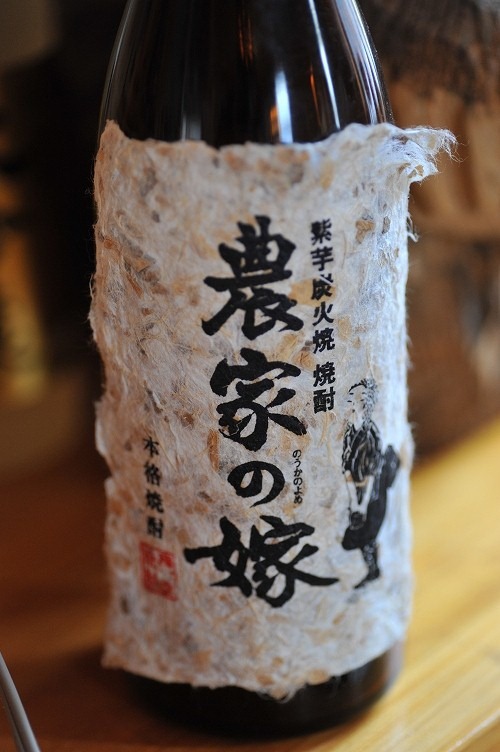 紫芋炭火焼 焼酎
農家の嫁
のうかのよめ
本格焼酎